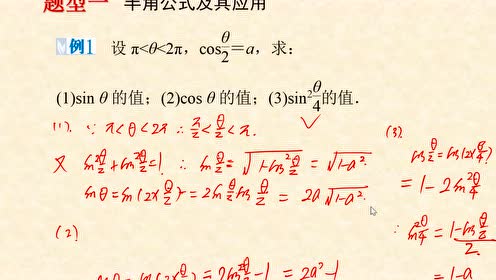 题型一 半角公式及其应用
例1 设 π<θ<2π，cos θ/2=a，求：
(1)sin θ 的值；(2)cos θ 的值；(3)sin² θ/4 的值．
(1). ∵ π<θ<2π ∴ π/2<θ/2<π.
又 sin² θ/2 + cos² θ/2 = 1 ∴ sin θ/2 = √(1-cos² θ/2) = √(1-a²).
sin θ = sin(2×θ/2) = 2sin θ/2 cos θ/2 = 2a√(1-a²)
(2)
= 2cos² θ/2 - 1 = 2a²-1
(3).
cos θ/2 = cos(2×θ/4)
= 1-2sin² θ/4
∴ sin² θ/4 = (1-cos θ/2)/2
= 1-a